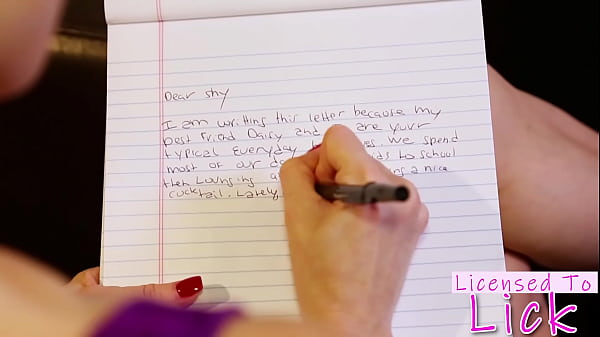 Dear Shy
I am writting this letter because my
best friend Daisy and are your
typical everyday We spend
most of our da ids to school
then Lounging a ng a nice
cocktail. Lately
Licensed To
Lick